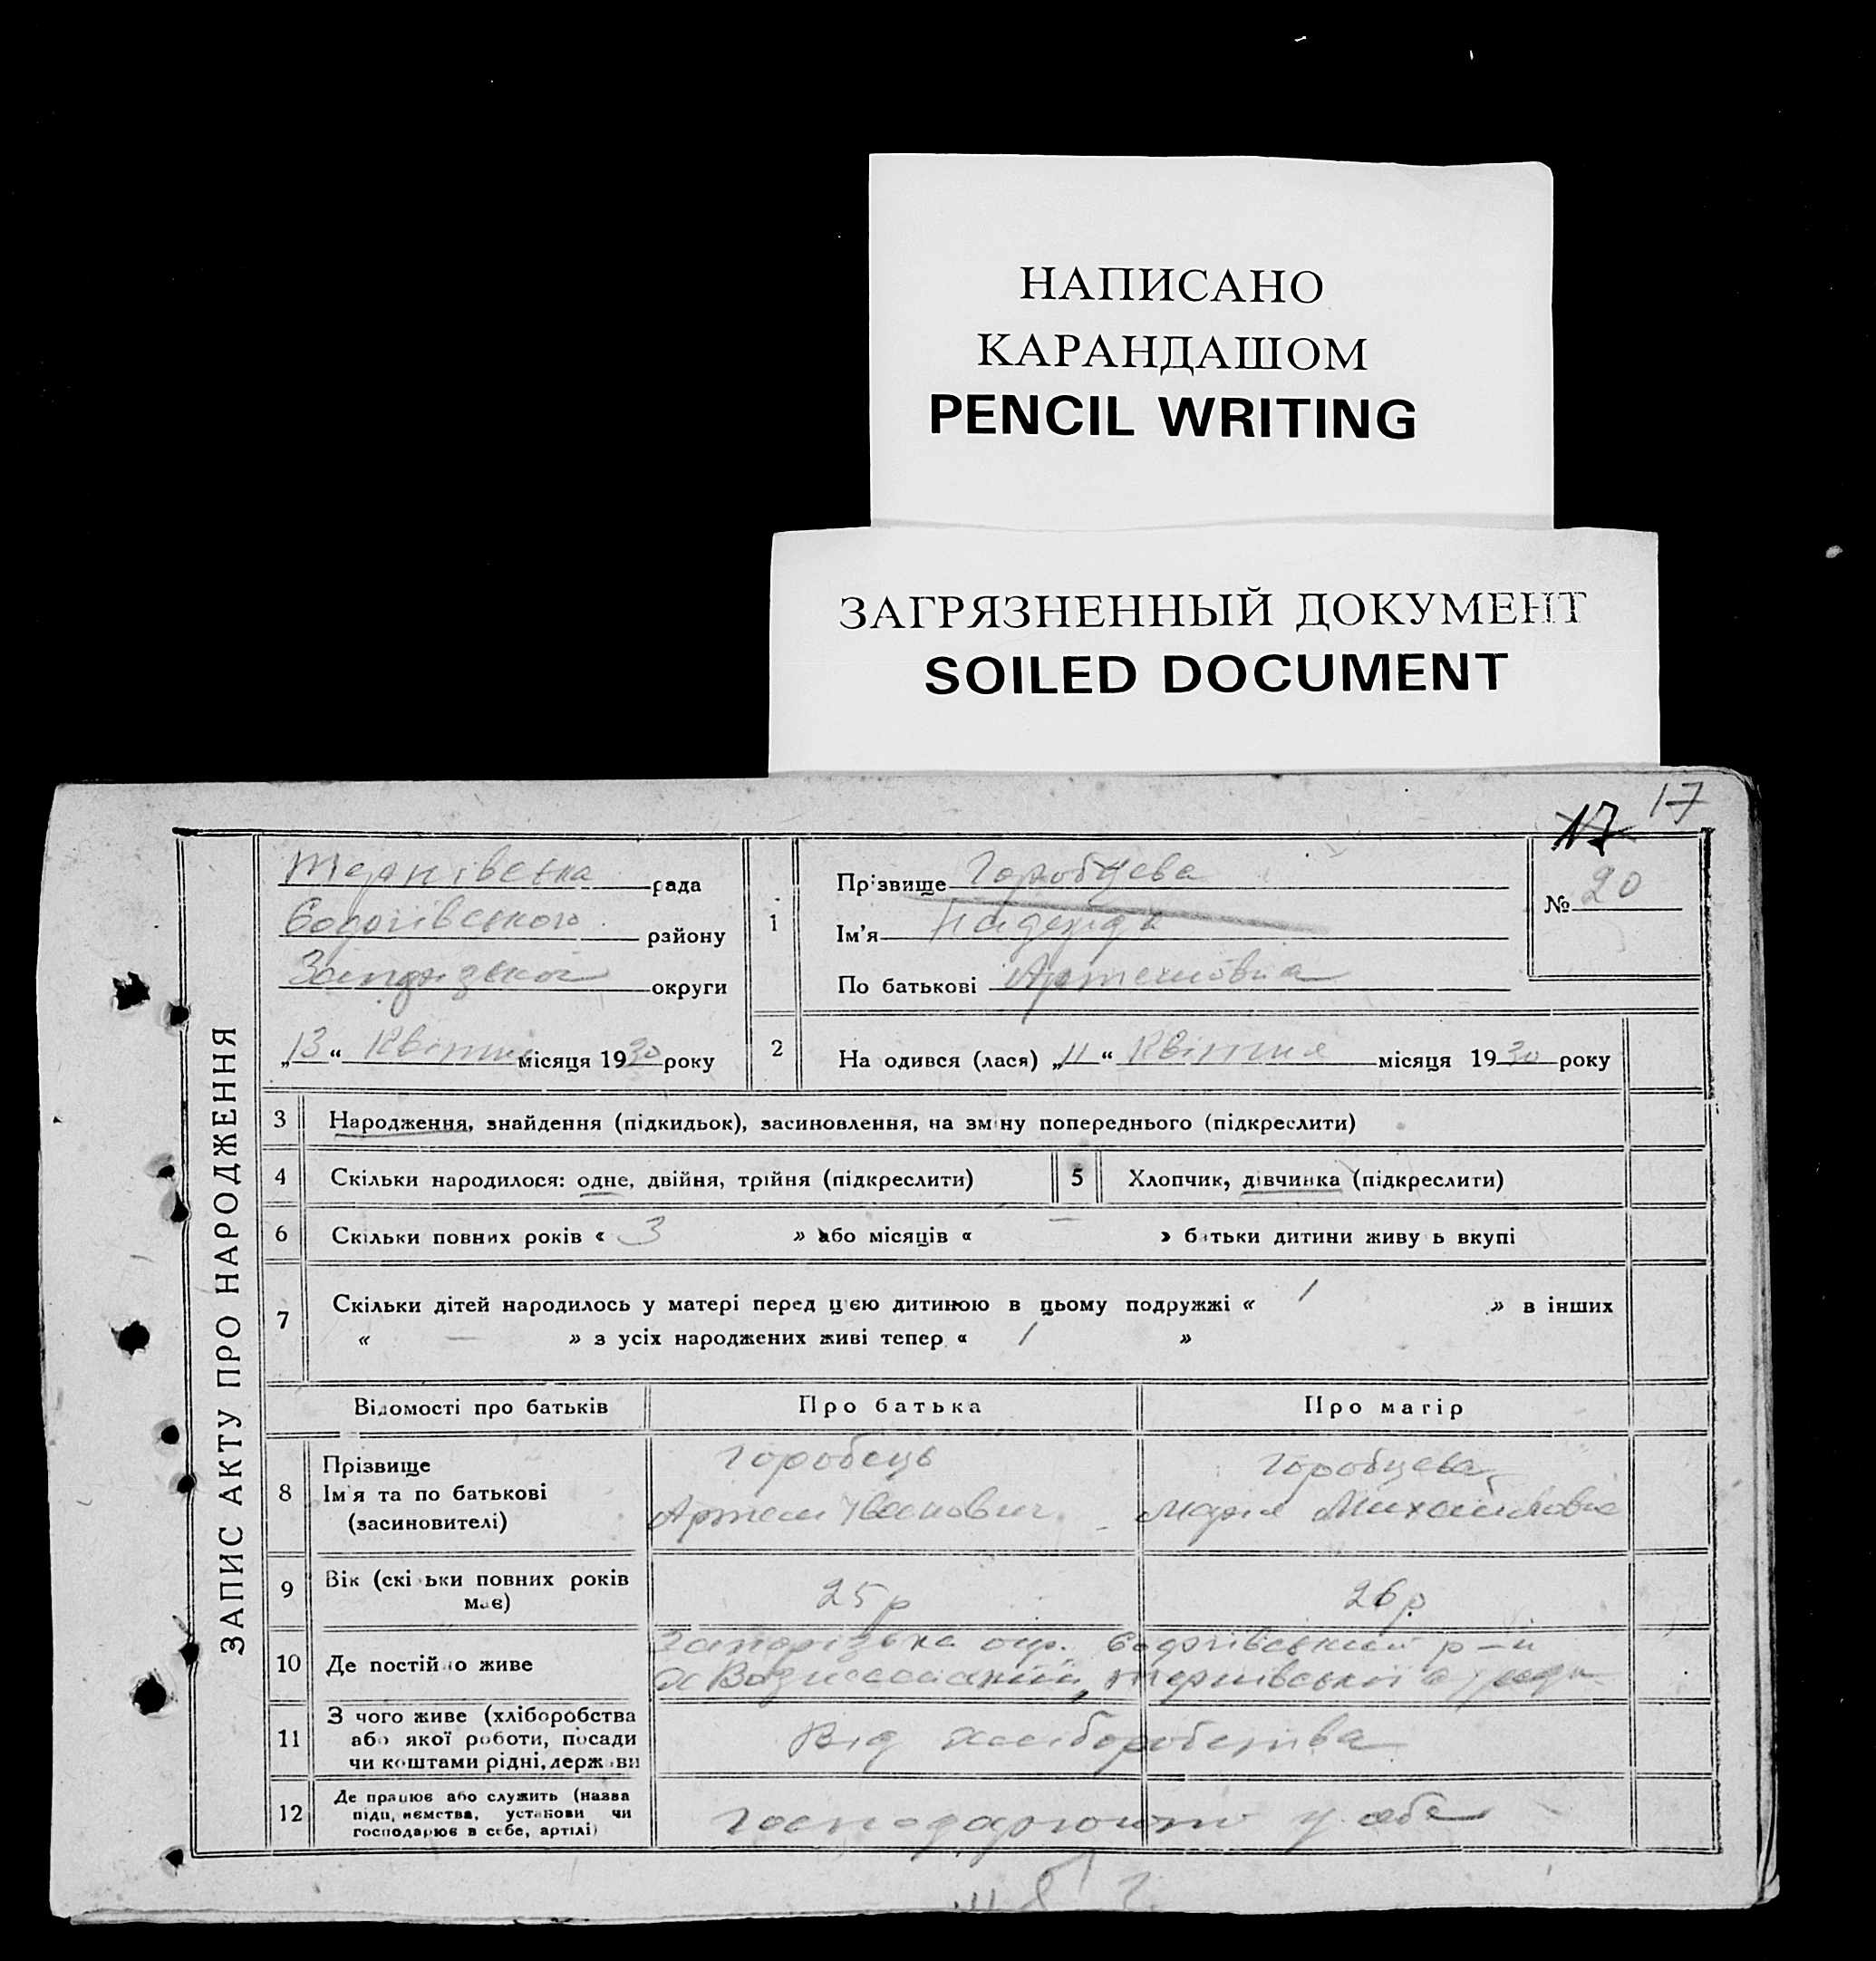 НАПИСАНО
КАРАНДАШОМ
PENCIL WRITING
ЗАГРЯЗНЕННЫЙ ДОКУМЕНТ
SOILED DOCUMENT
17 17
ЗАПИС АКТУ ПРО НАРОДЖЕННЯ
Тернівська рада
району
Запорізької округи
„13“ Квітня місяця 1930 року
1
Прізвище Горобцева
Ім'я Надежда
По батькові Артемовна
№ 20
2 На одився (лася) „11“ Квітня місяця 1930 року
3 Народження, знайдення (підкидьок), засиновлення, на зміну попереднього (підкреслити)
4 Скільки народилося: одне, двійня, трійня (підкреслити) 5 Хлопчик, дівчинка (підкреслити)
6 Скільки повних років « 3 » або місяців « — » батьки дитини живу ь вкупі
7 Скільки дітей народилось у матері перед цією дитиною в цьому подружжі « 1 » в інших
« — » з усіх народжених живі тепер « 1 »
Відомості про батьків Про батька Про матір
8 Прізвище
Ім'я та по батькові
(засиновителі)
Горобець
Артем Іванович
Горобцева
Марія Михайловна
9 Вік (скі ьки повних років
має)
25 р 26 р.
10 Де постійно живе
Запорізька окр. р-й
Тернівської
11 З чого живе (хліборобства
або якої роботи, посади
чи коштами рідні, держави
Від хліборобства
12 Де працює або служить (назва
підп, иємства, установи чи
господарює в себе, артілі)
господарюють у себе